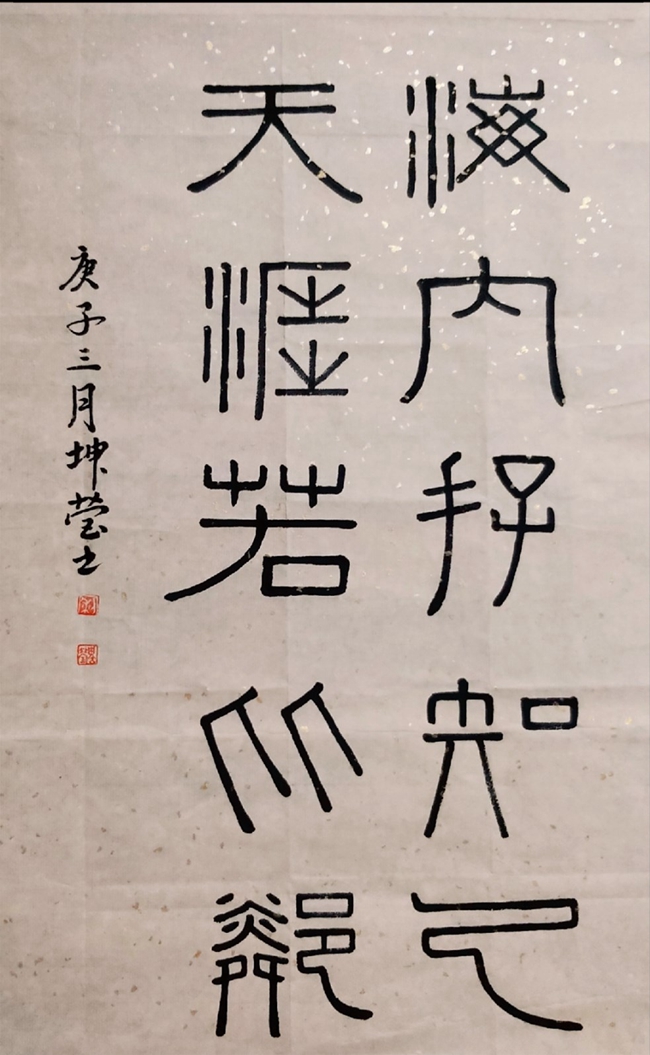 海内存知己
天涯若比鄰
庚子三月坤莹书